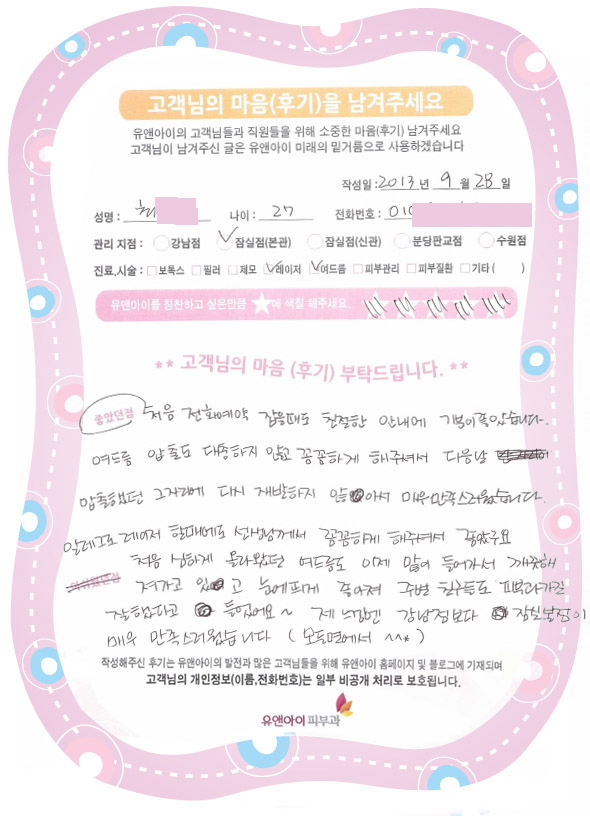 고객님의 마음(후기)을 남겨주세요
유앤아이의 고객님들과 직원들을 위해 소중한 마음(후기) 남겨주세요
고객님이 남겨주신 글은 유앤아이 미래의 밑거름으로 사용하겠습니다
작성일 : 2013 년 9 월 28 일
성명 : 최 나이 : 27 전화번호 : 010
관리 지점 : 강남점 잠실점(본관) 잠실점(신관) 분당판교점 수원점
진료,시술 : 보톡스 필러 제모 레이저 여드름 피부관리 피부질환 기타 ( )
유앤아이를 칭찬하고 싶은만큼 에 색칠 해주세요.
** 고객님의 마음 (후기) 부탁드립니다. **
좋았던점 처음 전화예약 잡을때도 친절한 안내에 기분이좋았습니다.
여드름 압출도 대충하지 않고 꼼꼼하게 해주셔서 다음날
압출했던 그자리에 다시 재발하지 않아서 매우만족스러웠습니다.
알레그로 레이저 할때에도 선생님께서 꼼꼼하게 해주셔서 좋았구요
처음 심하게 올라왔던 여드름도 이제 많이 들어가서 깨끗해
져가고 있고 눈에띄게 좋아져 주변 친구들도 피부과가길
잘했다고 들었어요~ 제 느낌엔 강남점보다 잠실본점이
매우 만족스러웠습니다 ( 모든면에서 ^^* )
작성해주신 후기는 유앤아이의 발전과 많은 고객님들을 위해 유앤아이 홈페이지 및 블로그에 기재되며
고객님의 개인정보(이름,전화번호)는 일부 비공개 처리로 보호됩니다.
유앤아이피부과